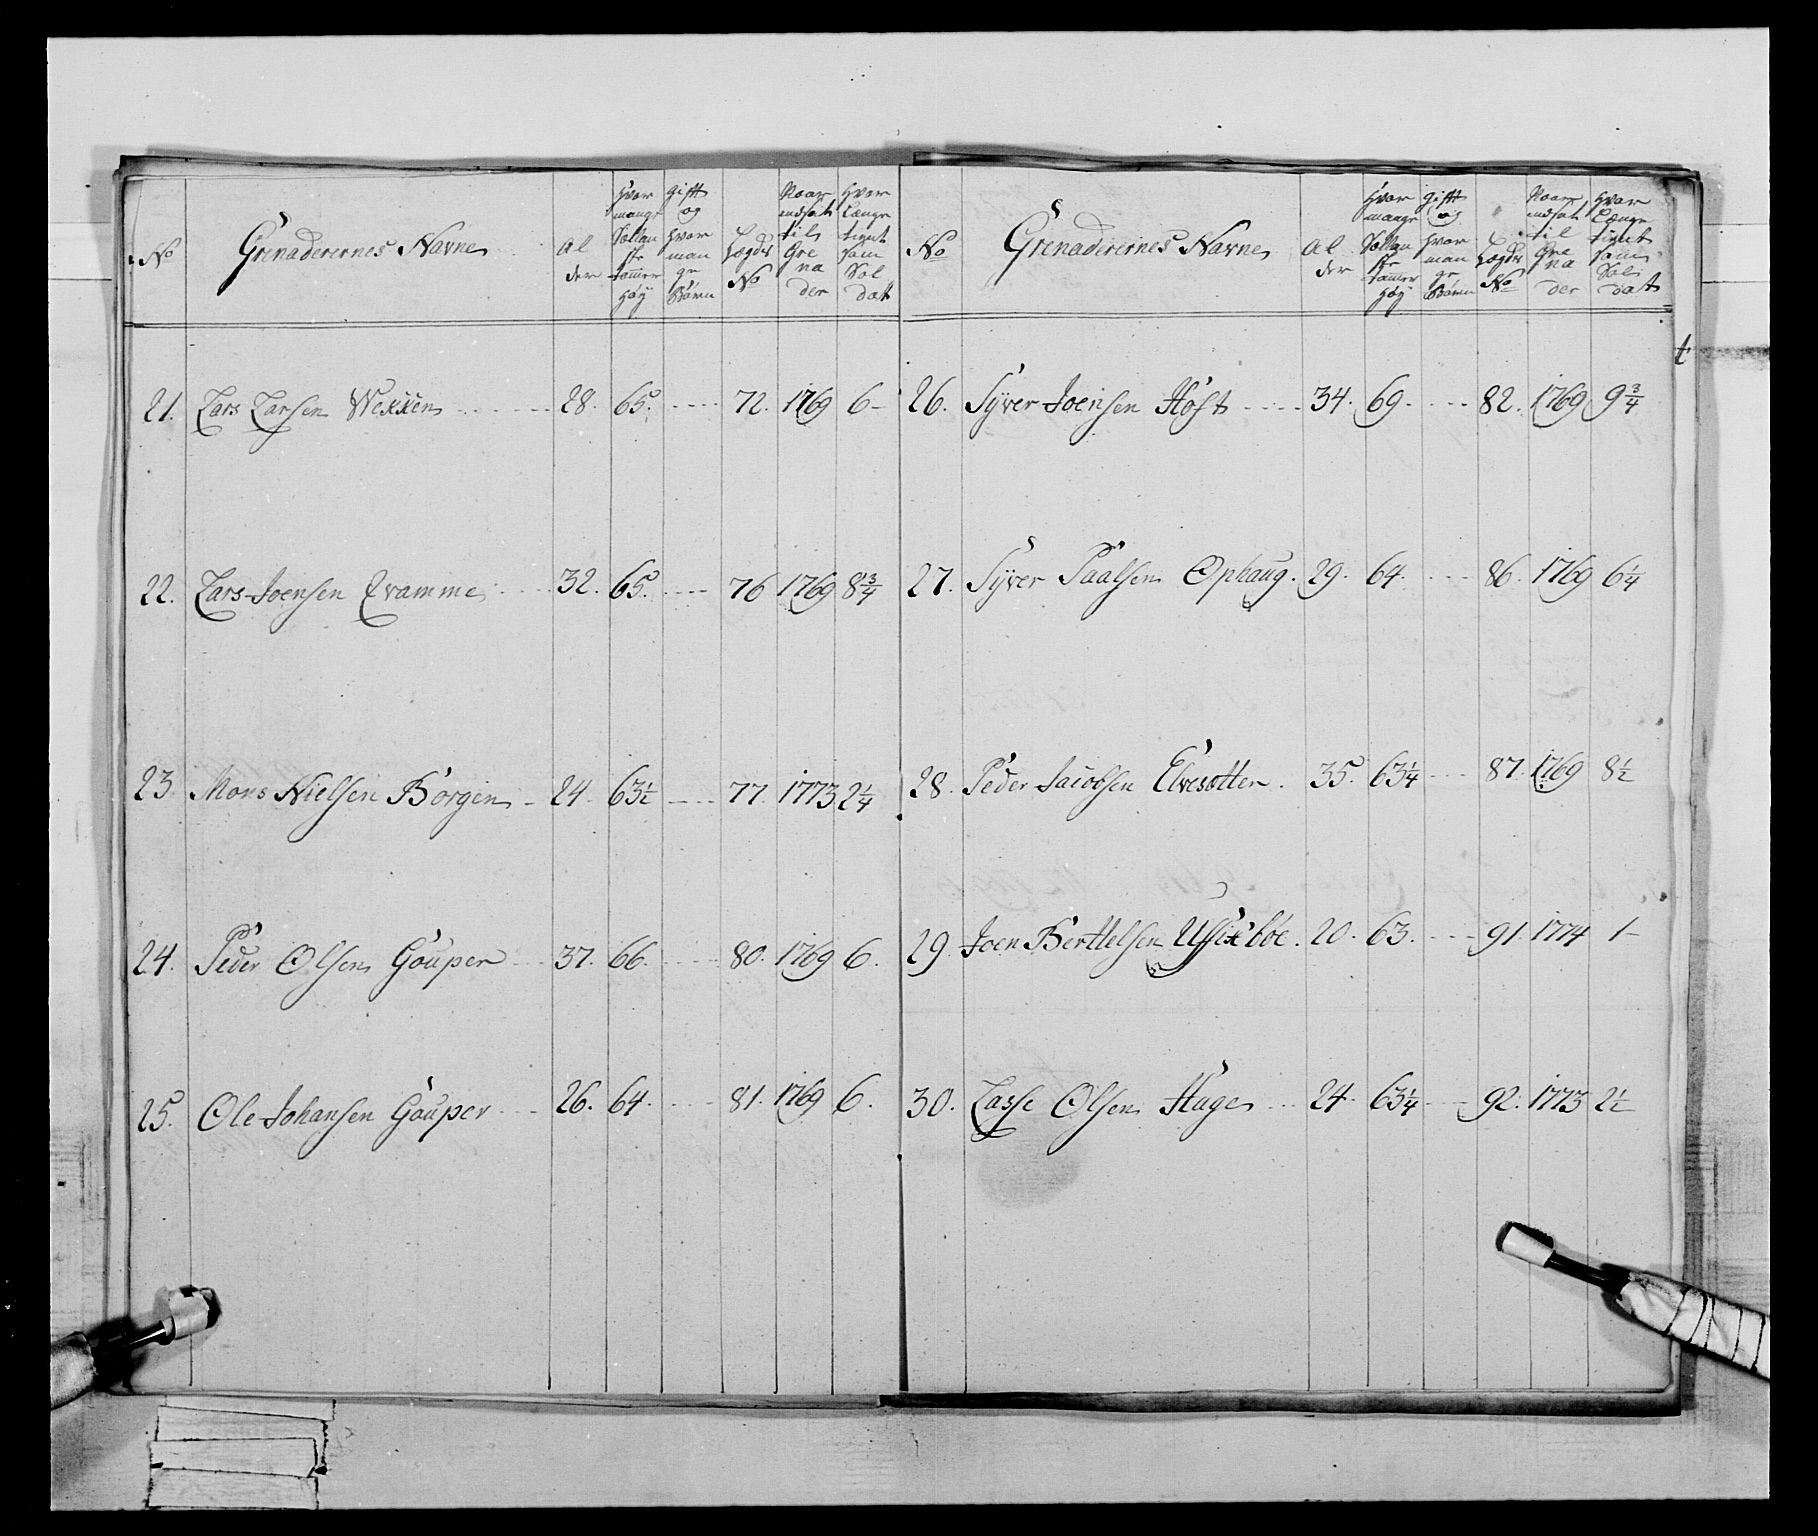 No Grenaderernes Navne Al der Hvor mange Sollan ste tommer høy gift og hvor man ge Børn Lægdets No Naar indsat til Gre na der Hvor Længe tient som Sol dat
21. Lars Larsen Wekken 28. 65. 72. 1769 6
22. Lars Joensen Qvamme 32. 65. 76 1769 8 3/4
23 Mons Nielsen Borgen 24. 63 1/2 77. 1773 2 1/4
24. Peder Olsen Gouper 37. 66. 80. 1769 6.
25. Ole Johansen Gouper 26. 64. 81. 1769 6.
No Grenaderernes Navne Al der Hvor mange Sollan ste tommer høy gift og hvor man ge Børn Lægdets No Naar indsat til Gre na der Hvor Længe tient som Sol dat
26. Syver Joensen Høst 34. 69. 82. 1769 9 3/4
27. Syver Paalsen Ophaug. 29. 64. 86. 1769 6 1/4
28. Peder Jacobsen Elvesætter. 35. 63 1/4 87. 1769 8 1/2
29 Joen Berthelsen 20. 63. 91. 1774 1
30. Lasse Olsen Hage 24. 63 1/4 92. 1773 2 1/2